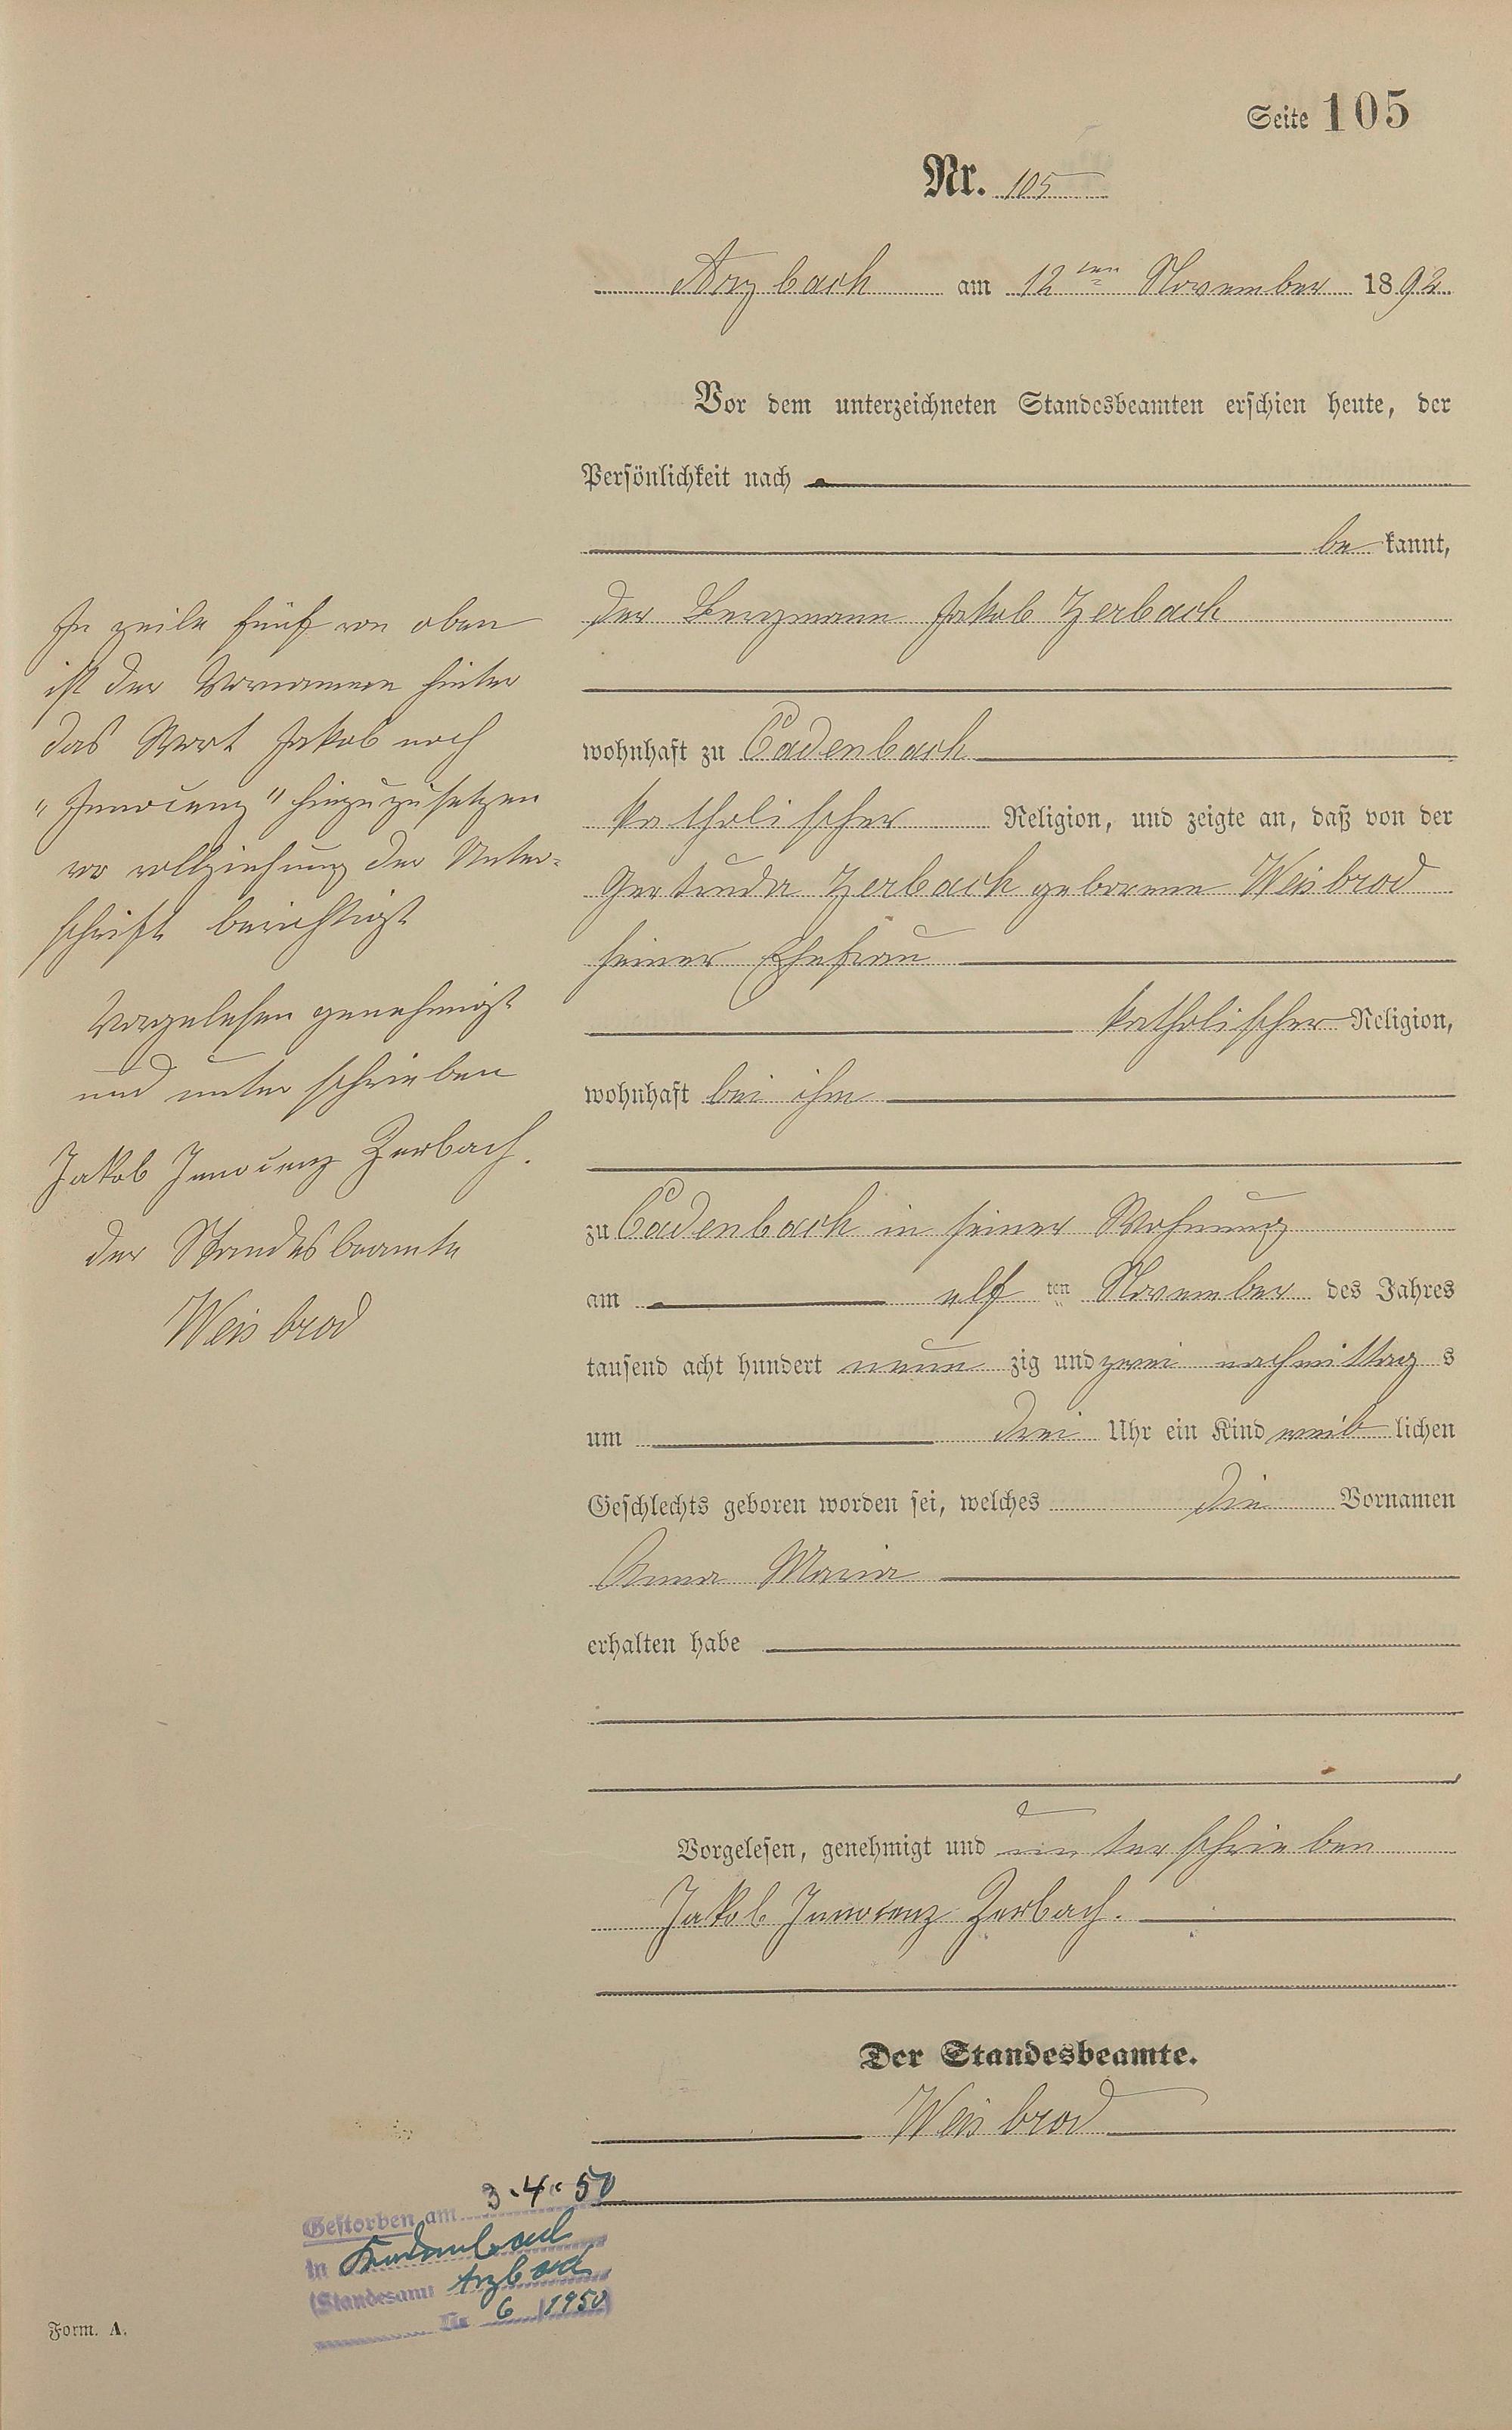 Seite 105
Nr. 105
Arzbach am 12ten November 1892
Vor dem unterzeichneten Standesbeamten erschien heute, der
Persönlichkeit nach
be kannt,
der Bergmann Jakob Zerbach
wohnhaft zu Cadenbach
katholischer Religion, und zeigte an, daß von der
Gertruda Zerbach geborene Weisbrod
seiner Ehefrau
katholischer Religion,
wohnhaft bei ihm
zu Cadenbach in seiner Wohnung
am elf ten November des Jahres
tausend acht hundert neun zig und zwei nachmittag s
um drei Uhr ein Kind weib lichen
Geschlechts geboren worden sei, welches die Vornamen
Anna Maria
erhalten habe
Vorgelesen, genehmigt und unterschrieben
Jakob Innocenz Zerbach.
Der Standesbeamte.
Weisbrod
In zeile fünf von oben
ist der Vornamen hinter
das Wort Jakob noch
"Innocenz" hinzuzusetzen
vor vollziehung der Unter-
schrift berichtigt
Vorgelesen genehmigt
und unterschrieben
Jakob Innocenz Zerbach.
der Standesbeamte
Weisbrod
Gestorben am 3.4.50
in Kadenbach
(Standesamt Arzbach
Nr 6/1950)
Form. A.